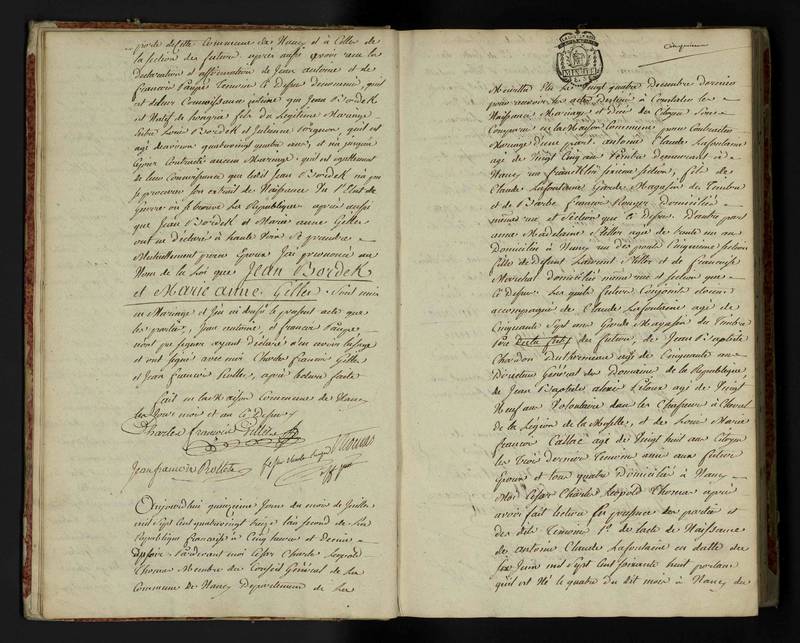 porte de cette Commune de Nancy et à Celles de
la section des futurs après aussi avoir reçu la
Declaration et affirmation de Jean antoine et de
francois temoins Cy dessus denommés, qui
ont dit leur Connoissance intime que Jean Bordek
est Natif de hongrie fils du Légitime Mariage
entre Louis Bordek et Julienne qu'il est
agé d'environ quatrevingt quatre ans, et n'a jusqu'à
ce jour Contracté aucun Mariage, qu'il est également
de leur Connoissance que ledit Jean Bordek n'a pu
se procurer son extrait de Naissance vu l'Etat de
Guerre où se trouve la République après aussi
que Jean Bordek et Marie anne Gillet
ont eu déclaré à haute voix se prendre
Mutuellement pour Epoux J'ai prononcé au
Nom de la Loi que Jean Bordek
et Marie anne Gillet. Sont unis
en Mariage et j'ai dressé le présent acte que
les parties, Jean antoine, et francois
n'ont pu signer ayant déclaré n'en avoir l'usage
et ont signé avec moi Charles francois Gillet
et Jean francois Rollet, après lecture faite
fait en la Maison Commune de Nancy
les Jour mois et an Cy Dessus
Charles francois Gillet
Jean francois Rollet Thomas
off. pub.
Aujourdhui quinzieme Jour du mois de Juillet
mil sept Cent quatrevingt treize l'an second de la
République francoise à Cinq heures et Demie
Dusoir, Pardevant moi César Charle Léopold
Thomas Membre du Conseil Général de la
Commune de Nancy Departement de la
Cinquieme
MINUTE
Meurthe Elu le Vingt quatre Decembre dernier
pour recevoir les actes destinés à Constater les
Naissance Mariage et Décès des Citoyens Sont
Comparus en la Maison Commune pour Contracter
Mariage d'une part antoine Claude Lafontaine
agé de Vingt Cinq ans Peintre demeurant à
Nancy rue franklin sixieme section, fils de
Claude Lafontaine Garde Magasin du Timbre
et de Barbe francois domiciliés
même rue et Section que Cy Dessus. D'autre part
anne Madelaine Miller agée de trente un an
Domiciliée à Nancy rue des ponts Cinquieme Section
fille de defunt Laurent Miller et de francoise
Marchal domiciliée même rue et section que
Cy Dessus. Les quels futurs Conjoints étoient
accompagnés de Claude Lafontaine agé de
Cinquante Sept ans Garde Magasin du Timbre
Père du futur, de Jean Baptiste
Chardon agé de Cinquante ans
Directeur Général des Domaines de la République,
de Jean Baptiste alexis agé de Vingt
Neuf ans Volontaire dans les Chasseurs à Cheval
de la Légion de la Moselle, et de Louis Marie
francois Callot agé de Vingt huit ans Citoyen
les Trois derniers Temoins amis aux futurs
Epoux et tous quatre Domiciliés à Nancy
Moi César Charle Léopold Thomas après
avoir fait lecture En présence des parties et
des dits Temoins 1.° de l'acte de Naissance
de antoine Claude Lafontaine en datte du
six Juin mil sept Cent soixante huit portant
qu'il est Né le quatre du dit mois à Nancy du